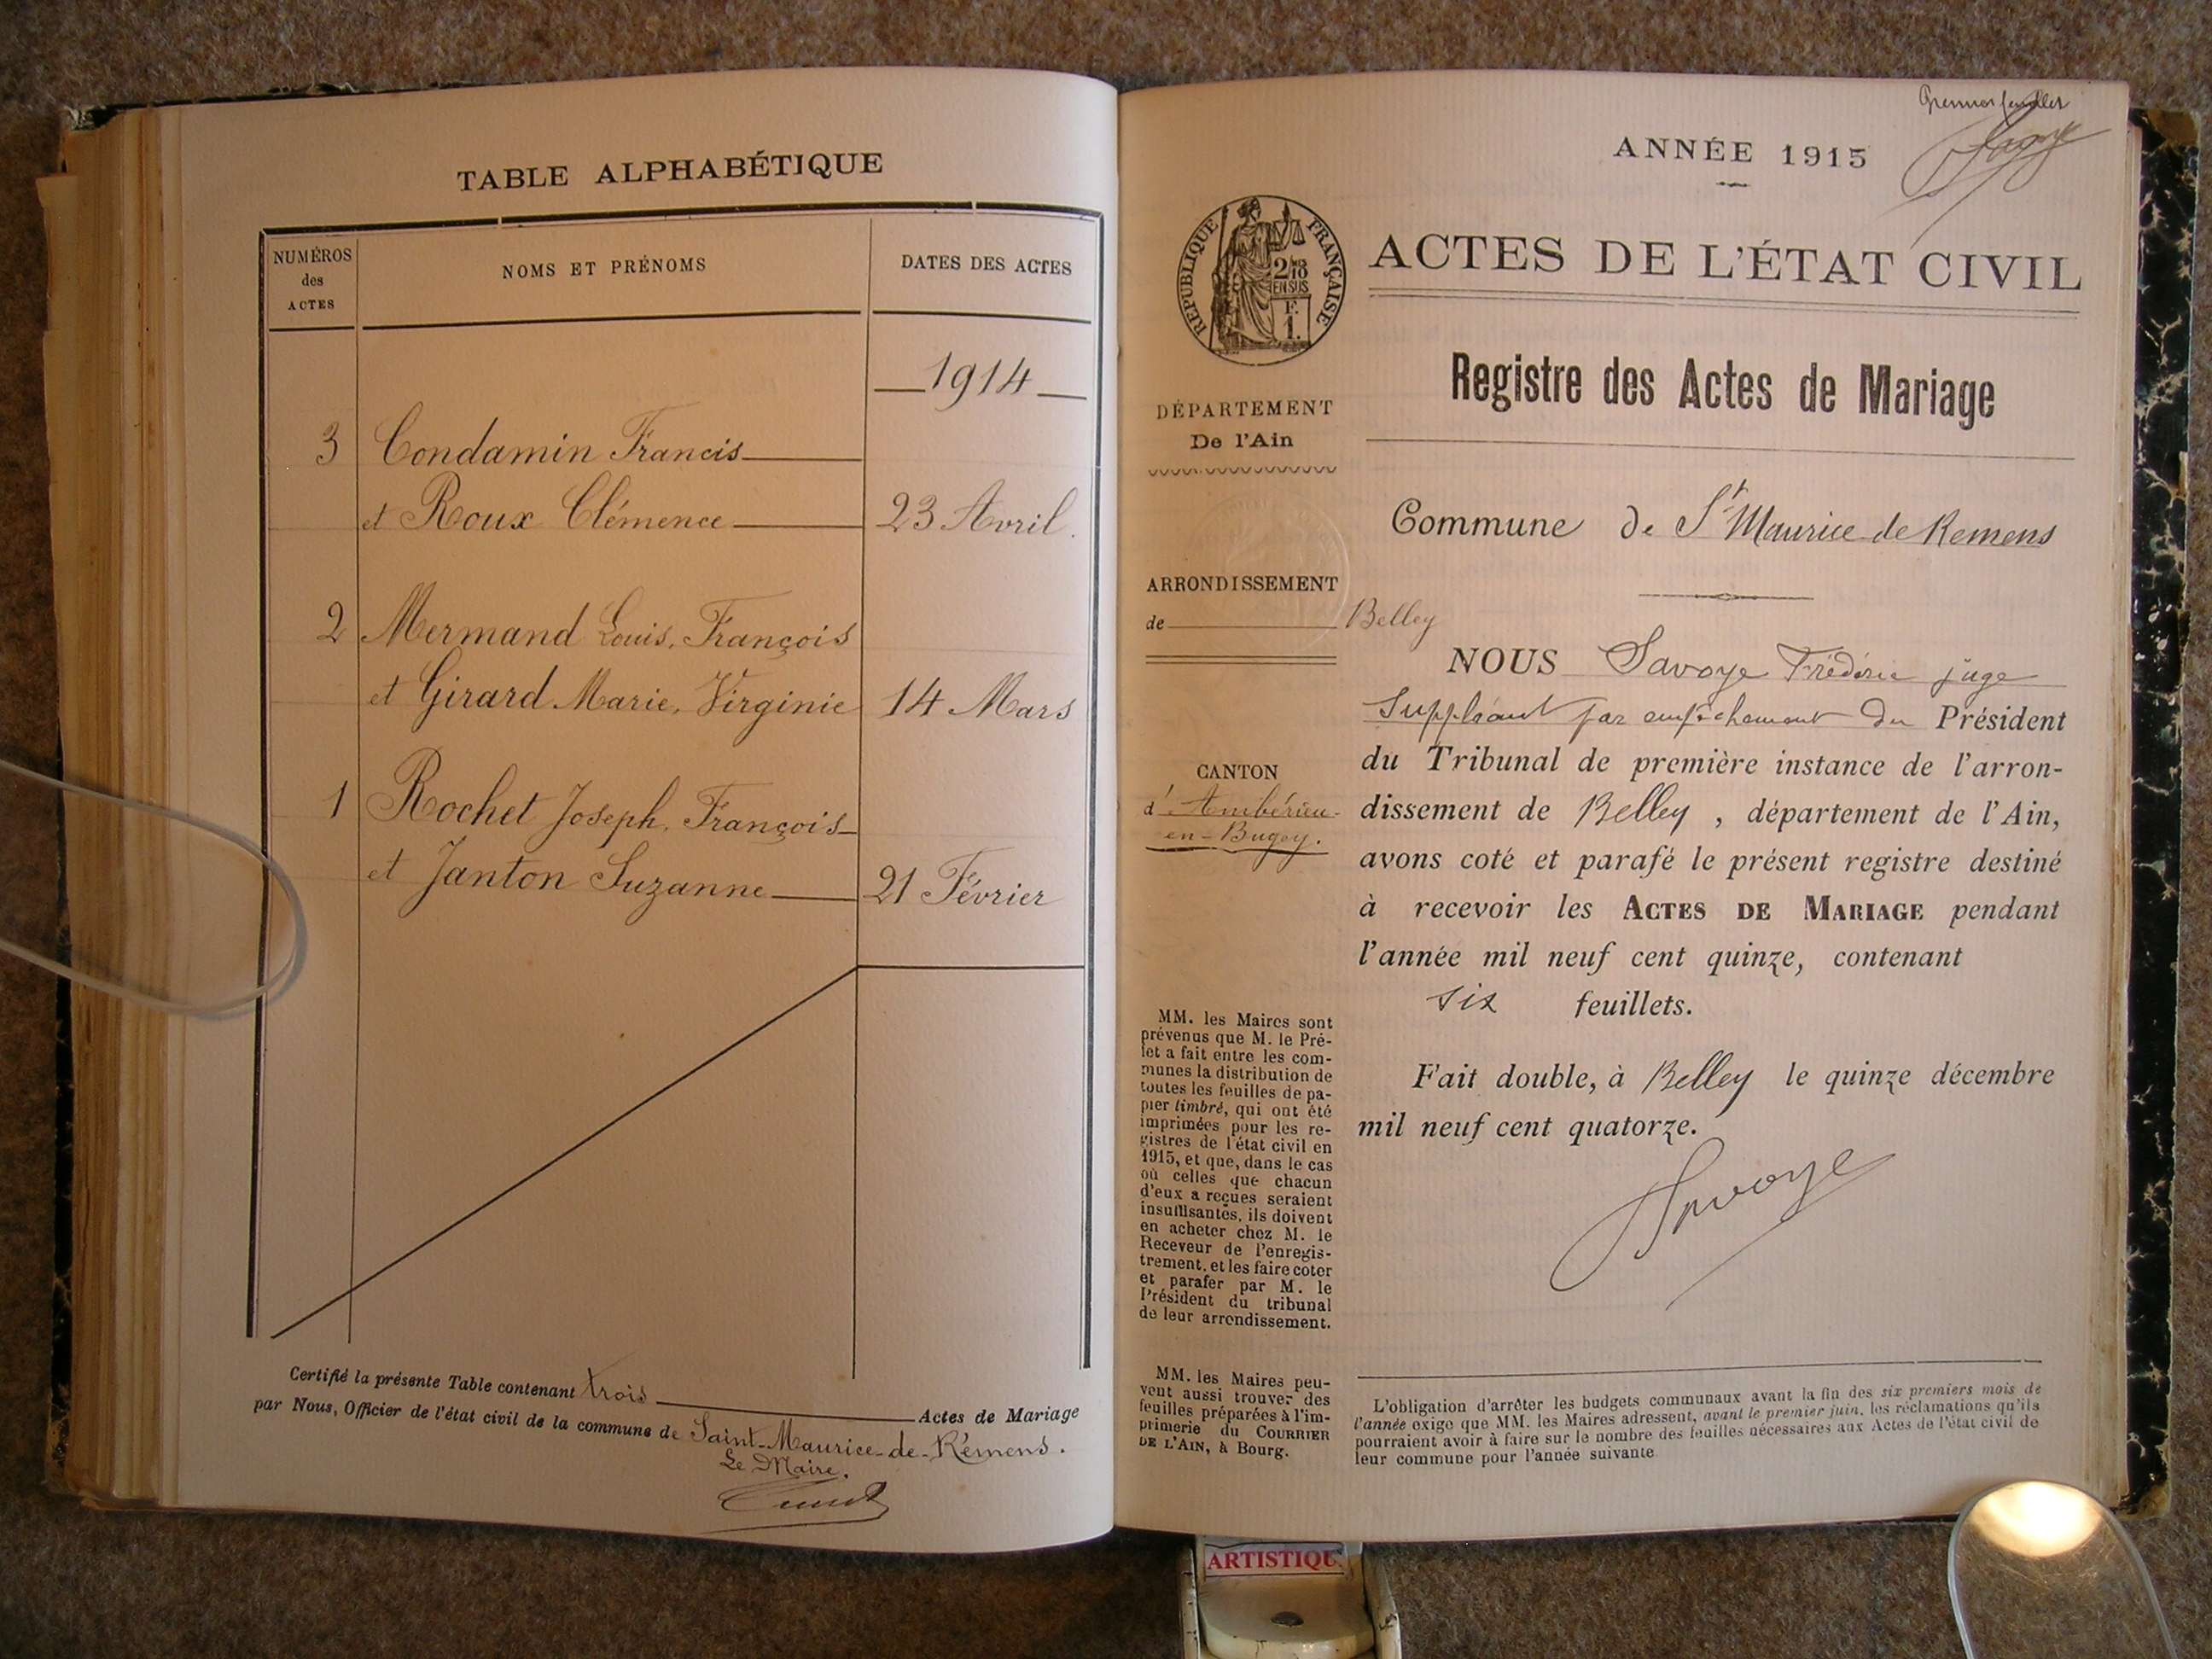 TABLE ALPHABÉTIQUE
NUMÉROS
des
ACTES
NOMS ET PRÉNOMS
DATES DES ACTES
1914
3 Condamin Francis
et Roux Clémence 23 Avril.
2 Mermand Louis, François
et Girard Marie, Virginie 14 Mars
1 Rochet Joseph, François
et Janton Suzanne 21 Février
Certifié la présente Table contenant trois Actes de Mariage
par Nous, Officier de l'état civil de la commune de Saint-Maurice-de-Rémens.
Le Maire,
Premier feuillet
ANNÉE 1915
RÉPUBLIQUE FRANÇAISE
2/10
EN SUS
F.
1.
ACTES DE L'ÉTAT CIVIL
Registre des Actes de Mariage
DÉPARTEMENT
De l'Ain
Commune de St Maurice de Remens
ARRONDISSEMENT
de Belley
CANTON
d'Ambérieu-
en-Bugey.
NOUS Savoye Frédéric juge
Suppléant par empêchement du Président
du Tribunal de première instance de l'arron-
dissement de Belley, département de l'Ain,
avons coté et parafé le présent registre destiné
à recevoir les ACTES DE MARIAGE pendant
l'année mil neuf cent quinze, contenant
six feuillets.
Fait double, à Belley le quinze décembre
mil neuf cent quatorze.
Savoye
MM. les Maires sont
prévenus que M. le Pré-
fet a fait entre les com-
munes la distribution de
toutes les feuilles de pa-
pier timbré, qui ont été
imprimées pour les re-
gistres de l'état civil en
1915, et que, dans le cas
où celles que chacun
d'eux a reçues seraient
insuffisantes, ils doivent
en acheter chez M. le
Receveur de l'enregis-
trement, et les faire coter
et parafer par M. le
Président du tribunal
de leur arrondissement.
MM. les Maires peu-
vent aussi trouver des
feuilles préparées à l'im-
primerie du COURRIER
DE L'AIN, à Bourg.
L'obligation d'arrêter les budgets communaux avant la fin des six premiers mois de
l'année exige que MM. les Maires adressent, avant le premier juin, les réclamations qu'ils
pourraient avoir à faire sur le nombre des feuilles nécessaires aux Actes de l'état civil de
leur commune pour l'année suivante.
ARTISTIQU